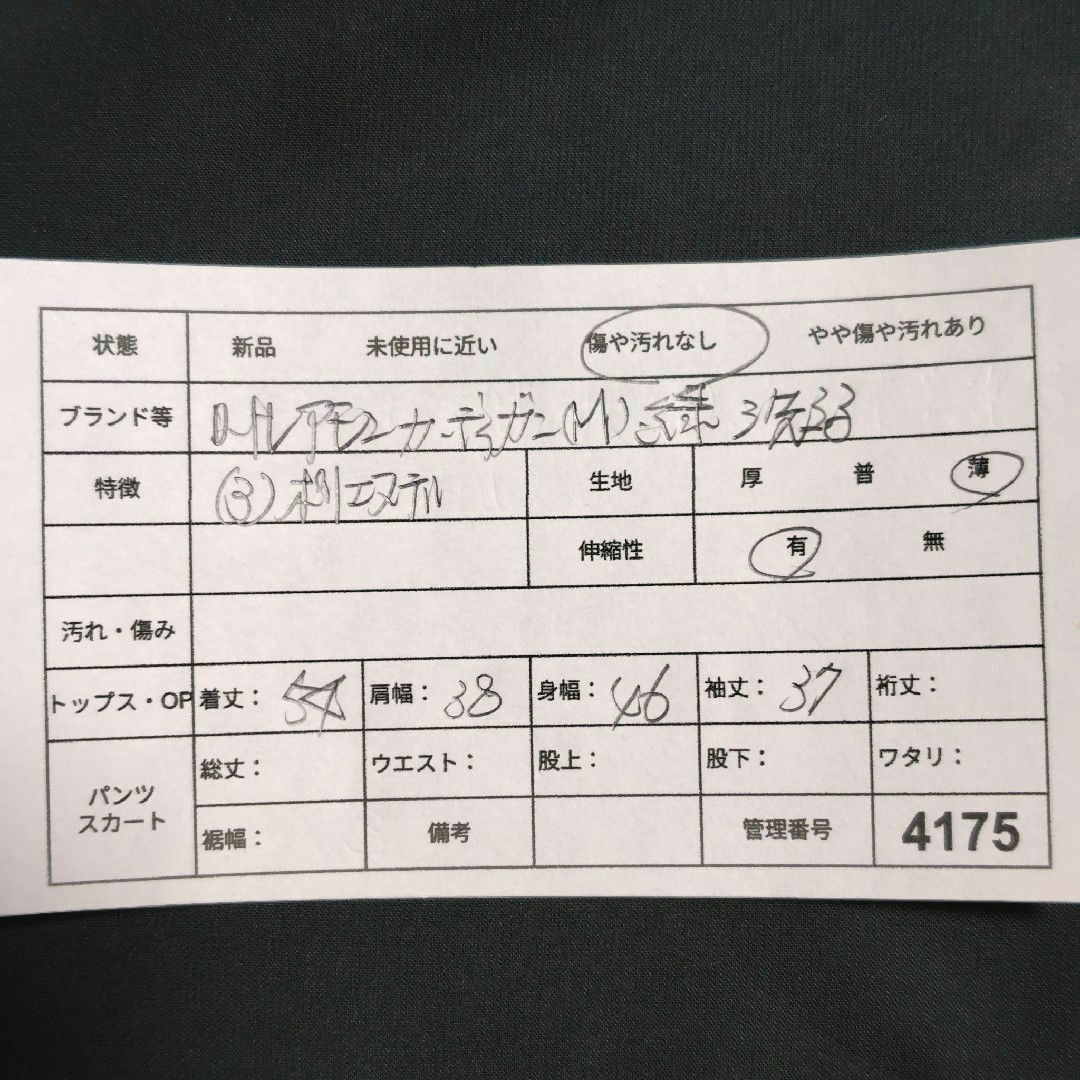 状態 新品 未使用に近い 傷や汚れなし やや傷や汚れあり
ブランド等 カーディガン(M)
特徴 ポリエステル 生地 厚 普 薄
伸縮性 有 無
汚れ・傷み
トップス・OP 着丈: 54 肩幅: 38 身幅: 46 袖丈: 37 裄丈:
パンツ
スカート
総丈: ウエスト: 股上: 股下: ワタリ:
裾幅: 備考 管理番号 4175